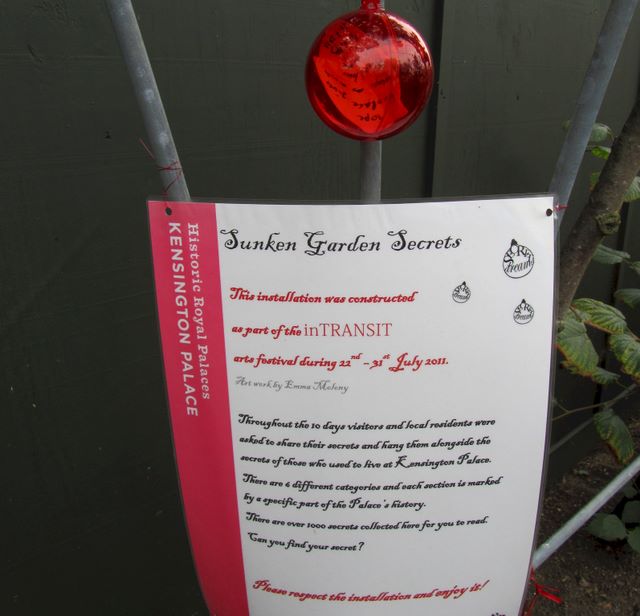 Historic Royal Palaces
KENSINGTON PALACE
Sunken Garden Secrets
This installation was constructed
as part of the inTRANSIT
arts festival during 22nd - 31st July 2011.
Art work by Emma Molony
Throughout the 10 days visitors and local residents were
asked to share their secrets and hang them alongside the
secrets of those who used to live at Kensington Palace.
There are 6 different categories and each section is marked
by a specific part of the Palace's history.
There are over 1000 secrets collected here for you to read.
Can you find your secret?
Please respect the installation and enjoy it!